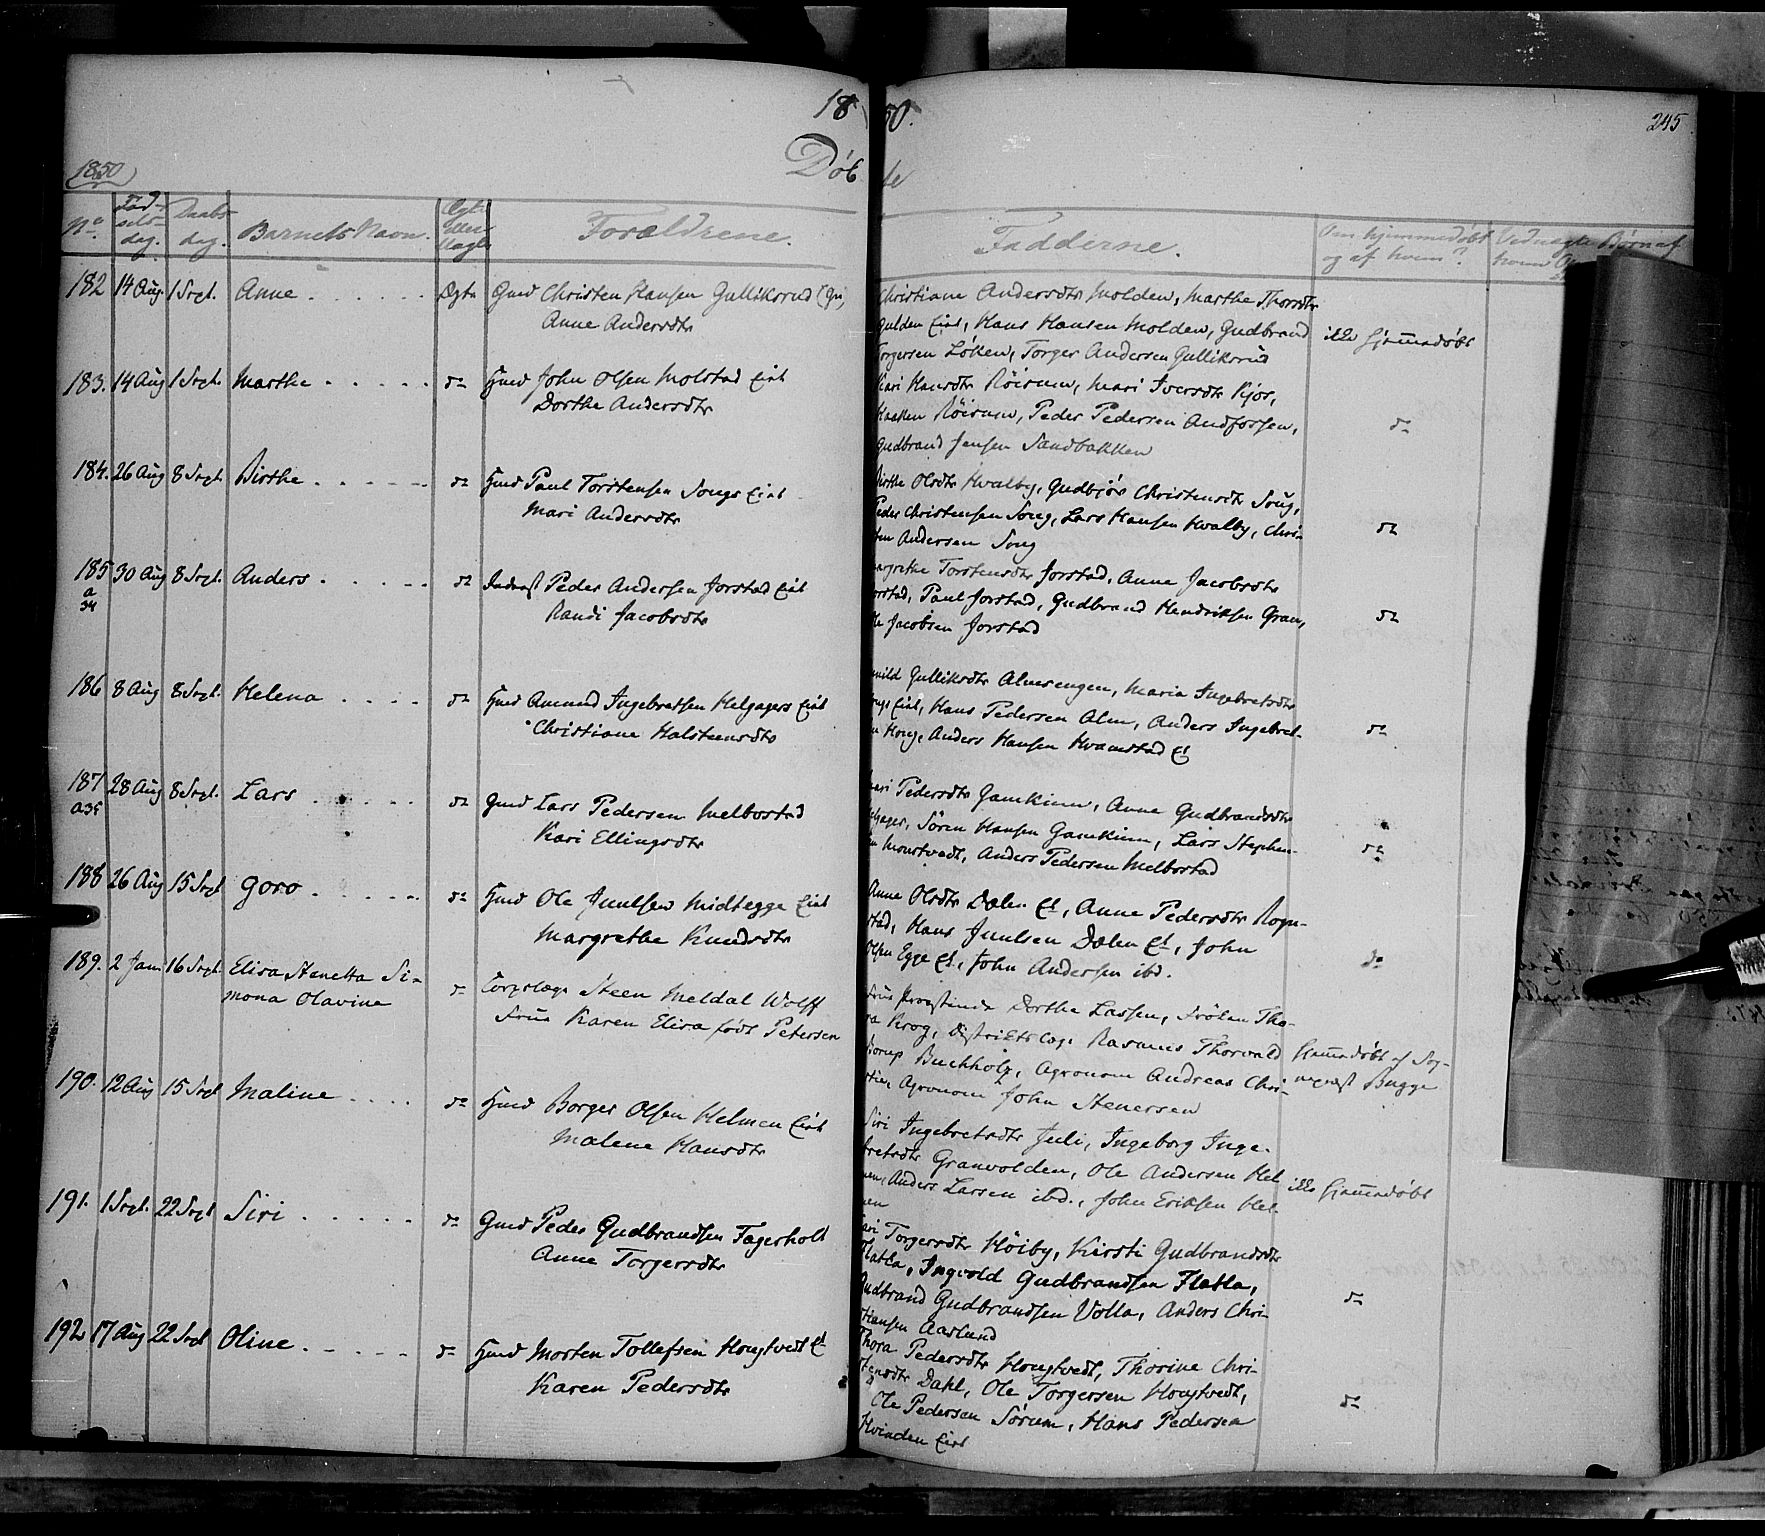 1850.
245
Døbte
1850
No. Fødselsdag. Daabsdag. Barnets Navn. Ægte eller Uægte Forældrene. Fadderne. Om hjemmedøbt og af hvem? Ved uægte Børn af hvem
182 14 Aug. 1 Sept. Anne Ægte Gmd Christen Hansen Gulliksrud
Anne Andersdtr
Christiane Andersdtr Molden, Marthe Thorsdtr
Gulden Eiet, Hans Hansen Molden, Gudbrand
Torgersen Løken, Torger Andersen Gulliksrud
ikke hjemmedøbt
183. 14 Aug 1 Sept. Marthe do Hmd John Olsen Molstad Eiet
Dorthe Andersdtr
Kari Hansdtr Röisum, Mari Iversdtr Kjos,
Haaken Röisum, Peder Pedersen Andfossen,
Gudbrand Jensen Sandbakken
do
184. 26 Aug 8 Sept. Birthe do Hmd Paul Torstensen Songs Eiet
Mari Andersdtr
Birthe Olsdtr Hvalby, Gudbjør Christensdtr Song,
Peder Christensen Song, Lars Hansen Hvalby, Chri-
sten Andersen Song
do
185 30 Aug 8 Sept. Anders do Inderst Peder Andersen Jorstad Eiet
a
34
Randi Jacobsdtr
Margrethe Torstensdtr Jorstad, Anne Jacobsdtr
Jorstad, Paul Jorstad, Gudbrand Hendriksen Gran,
Ole Jacobsen Jorstad
do
186 8 Aug 8 Sept. Helena do Hmd Amund Ingebretsen Helgagers Eiet
Christiane Halstensdtr
Gulliksdtr Almsengen, Maria Ingebretsdtr
Eiet, Hans Pedersen Alm, Anders Ingebret-
Anders Hansen Hvamstad Et
do
187 28 Aug 8 Sept. Lars do Gmd Lars Pedersen Melbostad
a35
Kari Ellingsdtr
Mari Pedersdtr Gamkinn, Anne Gudbrandsdtr
Helgager, Sören Hansen Gamkinn, Lars Stephen-
Anders Pedersen Melbostad
do
188 26 Aug 15 Sept Goro do Hmd Ole Juulsen Midtegge Eiet
Margrethe Knudsdtr
Anne Olsdtr Dælen Et, Anne Pedersdtr Rogn-
stad, Hans Juulsen Dælen Et, John
Olsen Egge Et, John Andersen ibd.
do
189. 2 Jan 16 Sept. Elisa Stenetta Si-
mona Olavine
do Corpslæge Steen Meldal Wolff
Frue Karen Elisa født Petersen
Frue Provstinde Dorthe Lassen, Frøken Tho-
ra Krog, Distriktslæge Rasmus Thorvald
Buchholz, Agronom Andreas Chri-
Agronom John Stenersen
Hjemmedøbt af Sog-
nepræst Bugge
190. 12 Aug 15 Sept Maline do Hmd Borger Olsen Helmen Eiet
Malene Hansdtr
Siri Ingebretsdtr Juli, Ingeborg Inge-
bretsdtr Granvolden, Ole Andersen Hel-
men, Anders Larsen ibd., John Eriksen Hel-
men
ikke hjemmedøbt
191. 1 Sept. 22 Sept Siri do Gmd Peder Gudbrandsen Fagerholt
Anne Torgersdtr
Kari Torgersdtr Höiby, Kirsti Gudbrandsdtr
Flatla, Ingvold Gudbrandsen Flatla,
Gudbrand Gudbrandsen Volla, Anders Chri-
Hansen Aaslund
do
192 17 Aug 22 Sept Oline do Hmd Morten Tollefsen Hougtvedt Et
Karen Pedersdtr
Thora Pedersdtr Hougtvedt, Thorine Chri-
stensdtr Dahl, Ole Torgersen Hougtvedt,
Ole Pedersen Sörum, Hans Pedersen
Hvinden Eiet
do